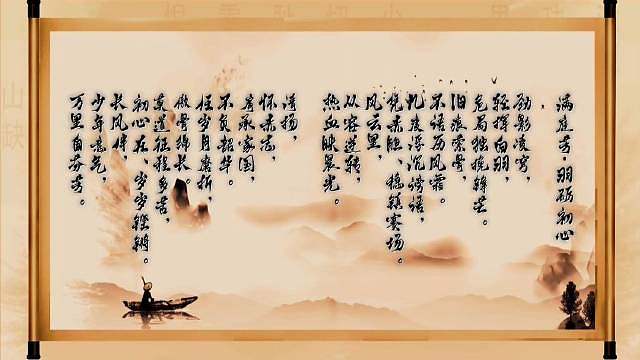 满庭芳·羽砺初心
劲影凌穹，
轻挥白羽，
危局独挽锋芒。
旧痕萦骨，
不语历风霜。
几度浮沉谤语，
凭赤胆、稳镇赛场。
风云里，
从容逆转，
热血映晨光。
扬，
怀赤志，
肩承家国，
不负韶华。
任岁月磨折，
傲骨绵长。
莫道征程多苦，
初心在、岁岁铿锵。
长风伴，
少年意气，
万里自芬芳。